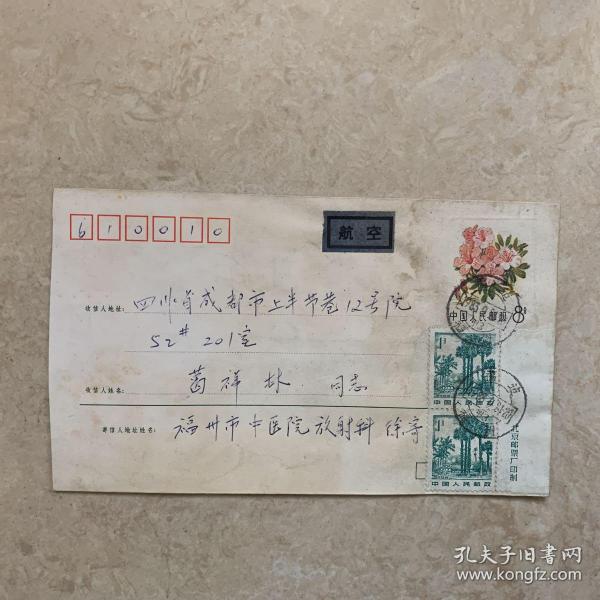 610010
航空
中国人民邮政 8分
收信人地址: 四川省成都市上半节巷12号院
52# 201室
收信人姓名: 葛祥林 同志
寄信人地址姓名: 福州市中医院放射科 徐寄
1分
中国人民邮政
1分
中国人民邮政
北京邮票厂印制
孔夫子旧书网
www.kongfz.com